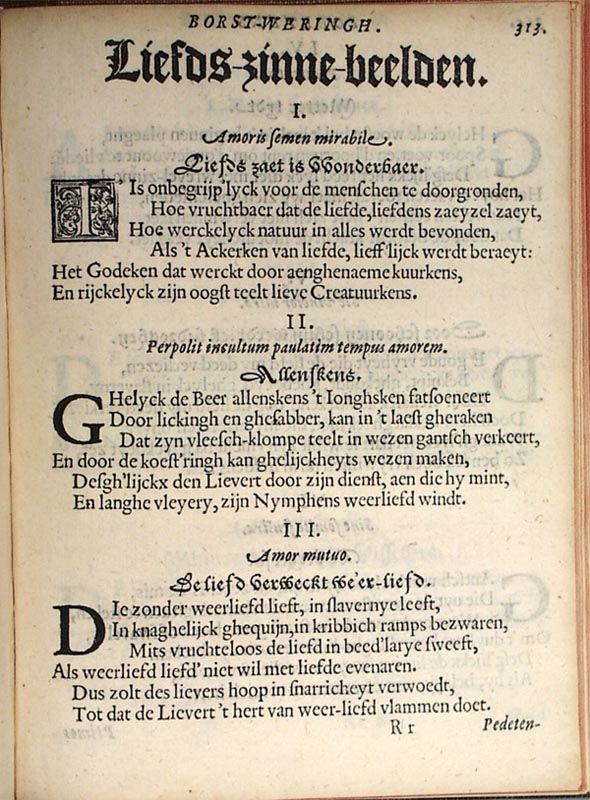 BORST-WERINGH. 313.
Liefds-zinne-beelden.
I.
Amoris semen mirabile.
Liefds zaet is Wonderbaer.
Is onbegrijp'lyck voor de menschen te doorgronden,
Hoe vruchtbaer dat de liefde, liefdens zaeyzel zaeyt,
Hoe werckelyck natuur in alles werdt bevonden,
Als 't Ackerken van liefde, lieff'lijck werdt beraeyt:
Het Godeken dat werckt door aenghenaeme kuurkens,
En rijckelyck zijn oogst teelt lieve Creatuurkens.
II.
Perpolit incultum paulatim tempus amorem.
Allenskens.
GHelyck de Beer allenskens 't Ionghsken fatsoeneert
Door lickingh en ghesabber, kan in 't laest gheraken
Dat zyn vleesch-klompe teelt in wezen gantsch verkeert,
En door de koest'ringh kan ghelijckheyts wezen maken,
Desgh'lijckx den Lievert door zijn dienst, aen die hy mint,
En langhe vleyery, zijn Nymphens weerliefd windt.
III.
Amor mutuo.
De liefd verweckt we'er-liefd.
DIe zonder weerliefd lieft, in slavernye leeft,
In knaghelijck ghequijn, in kribbich ramps bezwaren,
Mits vruchteloos de liefd in beed'larye sweeft,
Als weerliefd liefd' niet wil met liefde evenaren.
Dus zolt des lievers hoop in snarricheyt verwoedt,
Tot dat de Lievert 't hert van weer-liefd vlammen doet.
R r Pedeten-